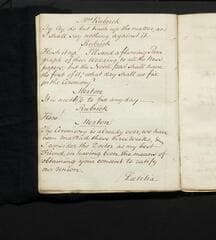 Mrs Rubrick
Ay Ay do but hush up the matter, and
I shall say nothing against it.
Rubrick
Hush it up. I'll send a flaming Para
graph of their Wedding to all the News
papers; but the Noose
first of all, what day shall we fix
for the Ceremony?
Merton
It is needless to fix any day
Rubrick
How!
Merton
The Ceremony is already over, we have
been married these three weeks, &
I consider the Doctor as my best
Friend, in having been the means of
obtaining your consent to ratify
our Union.
Laetitia